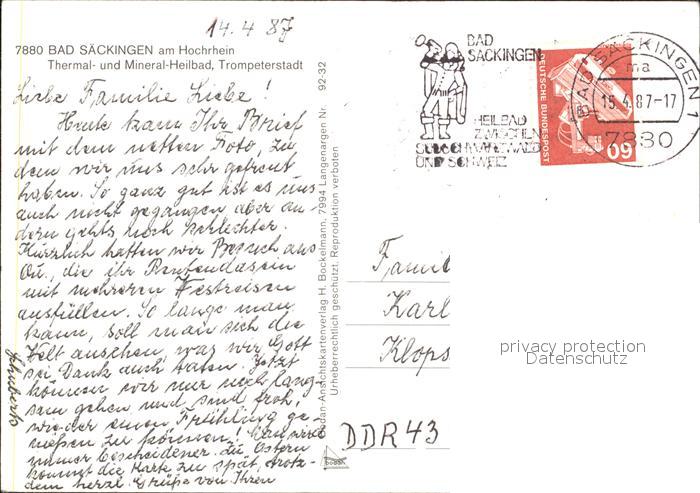 14.4.87
7880 BAD SÄCKINGEN am Hochrhein
Thermal- und Mineral-Heilbad, Trompeterstadt
92-32
Liebe Familie Liebe!
Heute kam Ihr Brief
mit dem netten Foto, zu
dem wir uns sehr gefreut
haben. So ganz gut ist es uns
auch nicht gegangen aber an-
dern gehts noch schlechter.
Kürzlich hatten wir Besuch aus
die ihr Rentendasein
mit mehreren Weltreisen
ausfüllen. So lange man
kann, soll man sich die
Welt ansehen, was wir Gott
sei Dank auch taten. Jetzt
können wir nur noch lang-
sam gehen und sind froh,
wieder einen Frühling ge-
nießen zu können! Man wird
immer bescheidener. Zu Ostern
kommt die Karte zu spät, trotz-
dem herzl. Grüße von Ihren
Bodan-Ansichtskartenverlag H. Bockelmann, 7994 Langenargen Nr.
Urheberrechtlich geschützt. Reproduktion verboten
BAD
SÄCKINGEN
HEILBAD
ZWISCHEN
SÜDSCHWARZWALD
UND SCHWEIZ
DEUTSCHE BUNDESPOST
60
BAD SÄCKINGEN 1
ma
15.4.87-17
7880
Famil
Karl
Klops
DDR 43
privacy protection
Datenschutz